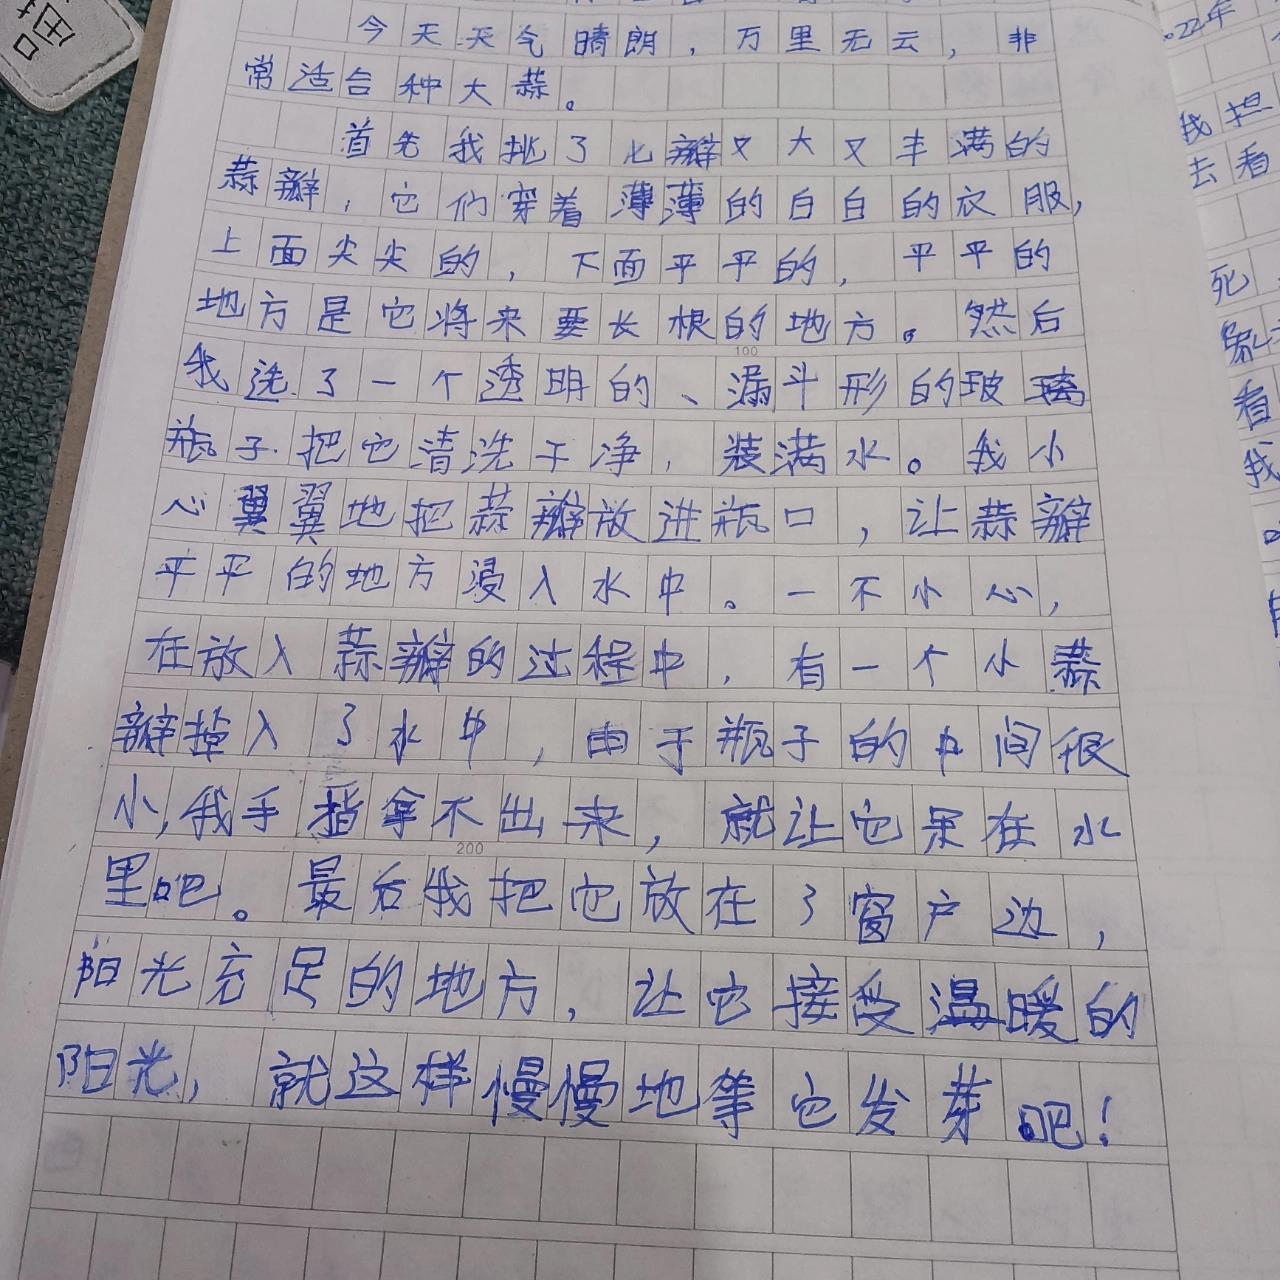 今天天气晴朗，万里无云，非
常适合种大蒜。
首先我挑了七瓣又大又丰满的
蒜瓣，它们穿着薄薄的白白的衣服，
上面尖尖的，下面平平的，平平的
地方是它将来要长根的地方。然后
100
我选了一个透明的、漏斗形的玻璃
瓶子把它清洗干净，装满水。我小
心翼翼地把蒜瓣放进瓶口，让蒜瓣
平平的地方浸入水中。一不小心，
在放入蒜瓣的过程中，有一个小蒜
瓣掉入了水中，由于瓶子的中间很
小，我手指拿不出来，就让它呆在水
200
里吧。最后我把它放在了窗户边，
阳光充足的地方，让它接受温暖的
阳光，就这样慢慢地等它发芽吧！
22年
我担
去看
死
看
我